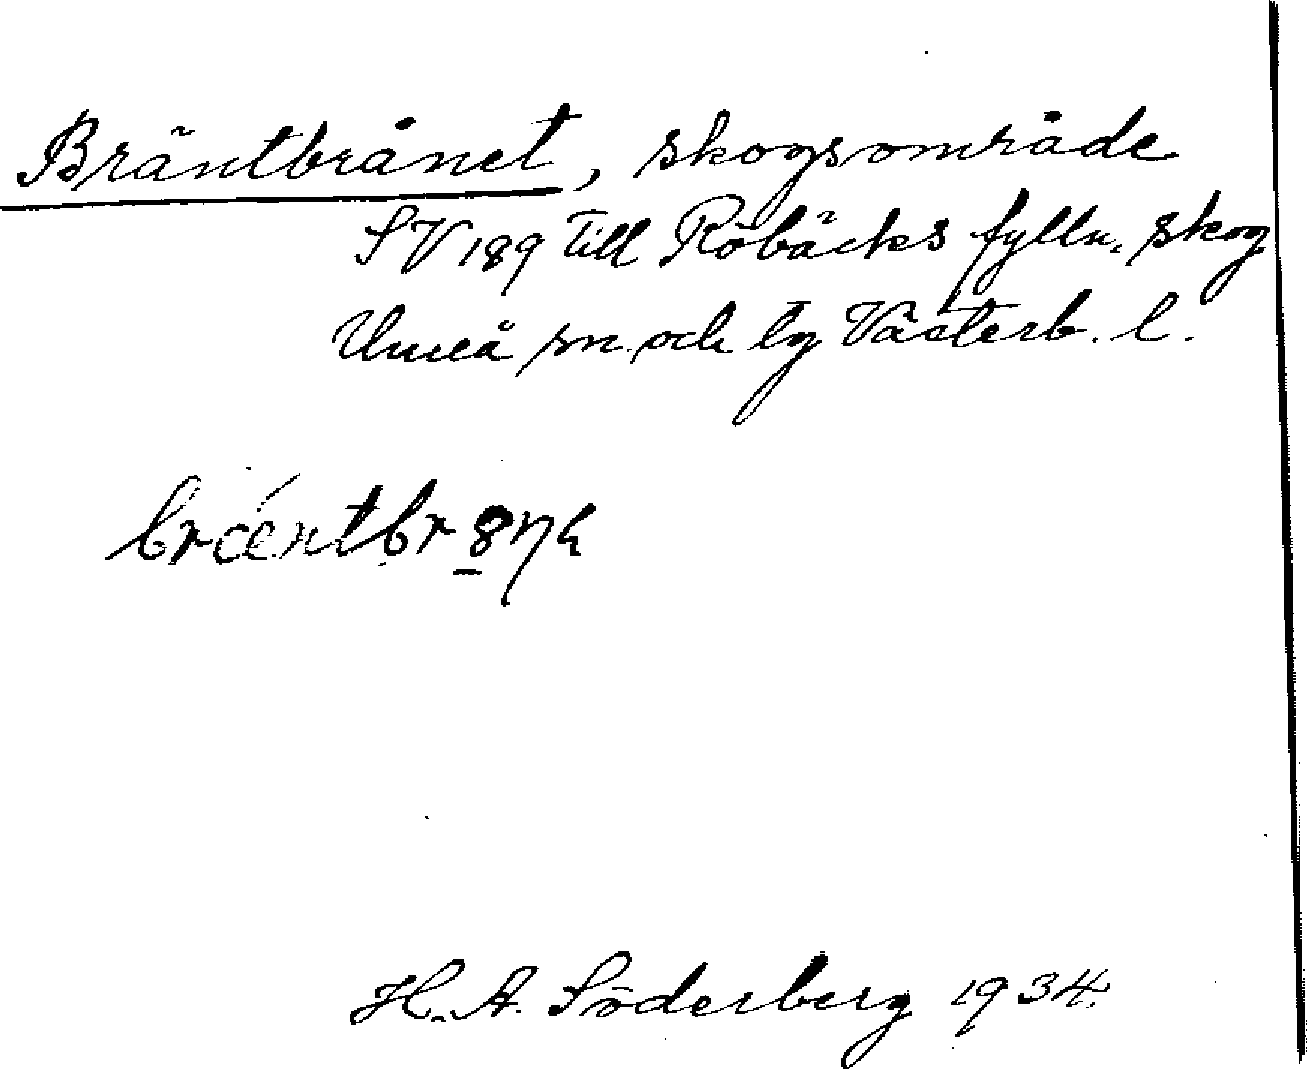 Bräntbrånet, skogsområde
SV 189 till Röbäcks fylln. skog
Umeå sn. och by Västerb. l.
H. A. Söderberg 1934.